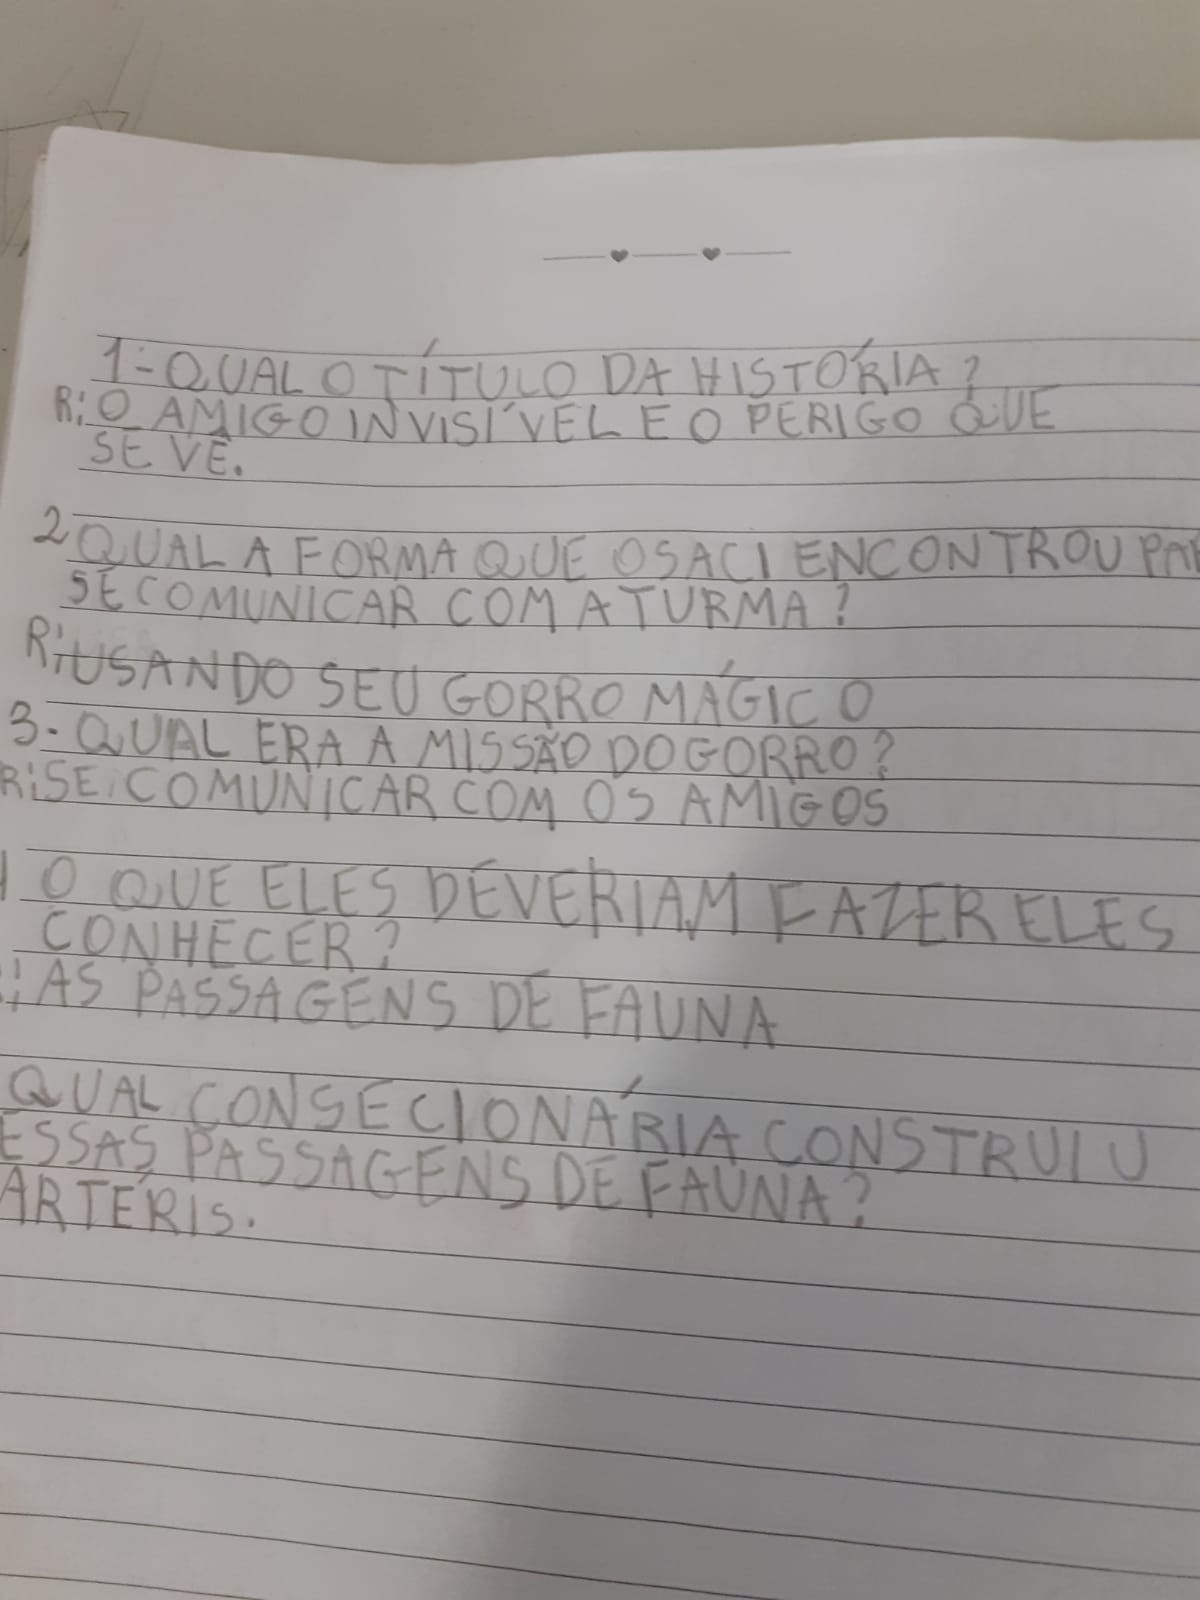 1-QUAL O TÍTULO DA HISTÓRIA?
R: O AMIGO INVISÍVEL E O PERIGO QUE
SE VÊ.
2 QUAL A FORMA QUE O SACI ENCONTROU PAR
SE COMUNICAR COM A TURMA?
R: USANDO SEU GORRO MÁGICO
3- QUAL ERA A MISSÃO DO GORRO?
R: SE COMUNICAR COM OS AMIGOS
O QUE ELES DEVERIAM FAZER ELES
CONHECER?
: AS PASSAGENS DE FAUNA
QUAL CONSECIONÁRIA CONSTRUIU
ESSAS PASSAGENS DE FAUNA?
ARTÉRIS.